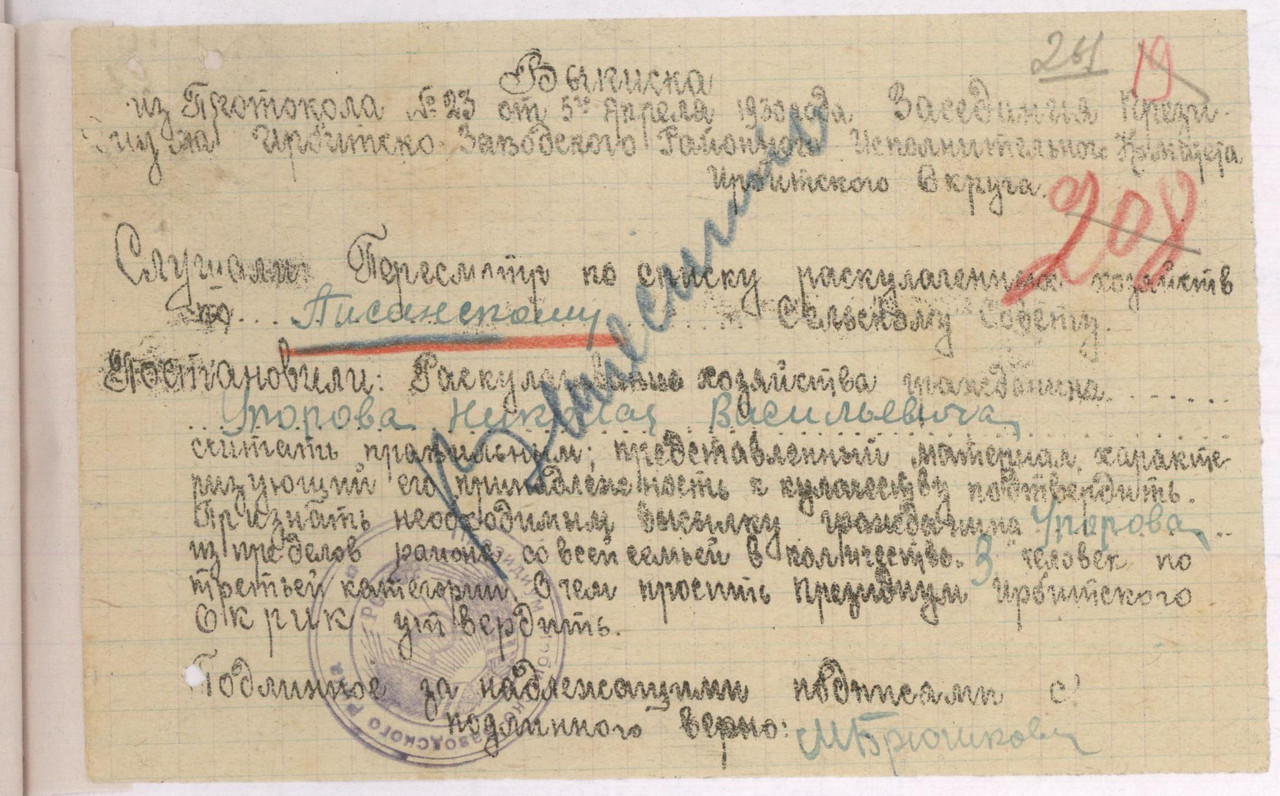 261 19
Выписка
из Протокола № 23 от 5го Апреля 1930 года Заседания Прези-
диума Ирбитско-Заводского Районного Исполнительного Комитета
Ирбитского Округа.
208
Слушали: Пересмотр по списку раскулаченных хозяйств
по... Писанскому ........ Сельскому Совету.
Постановили: Раскулачивание хозяйства гражданина........
... Упорова Николая Васильевича
считать правильным; представленный материал, характе-
ризующий его принадлежность к кулачеству подтвердить.
Признать необходимым высылку гражданина Упорова
из пределов района со всей семьей в количестве 3 человек по
третьей категории. О чем просить Президиум Ирбитского
Окрик утвердить.
Подлинное за надлежащими подписями с
подлинного верно: МБрюшкова